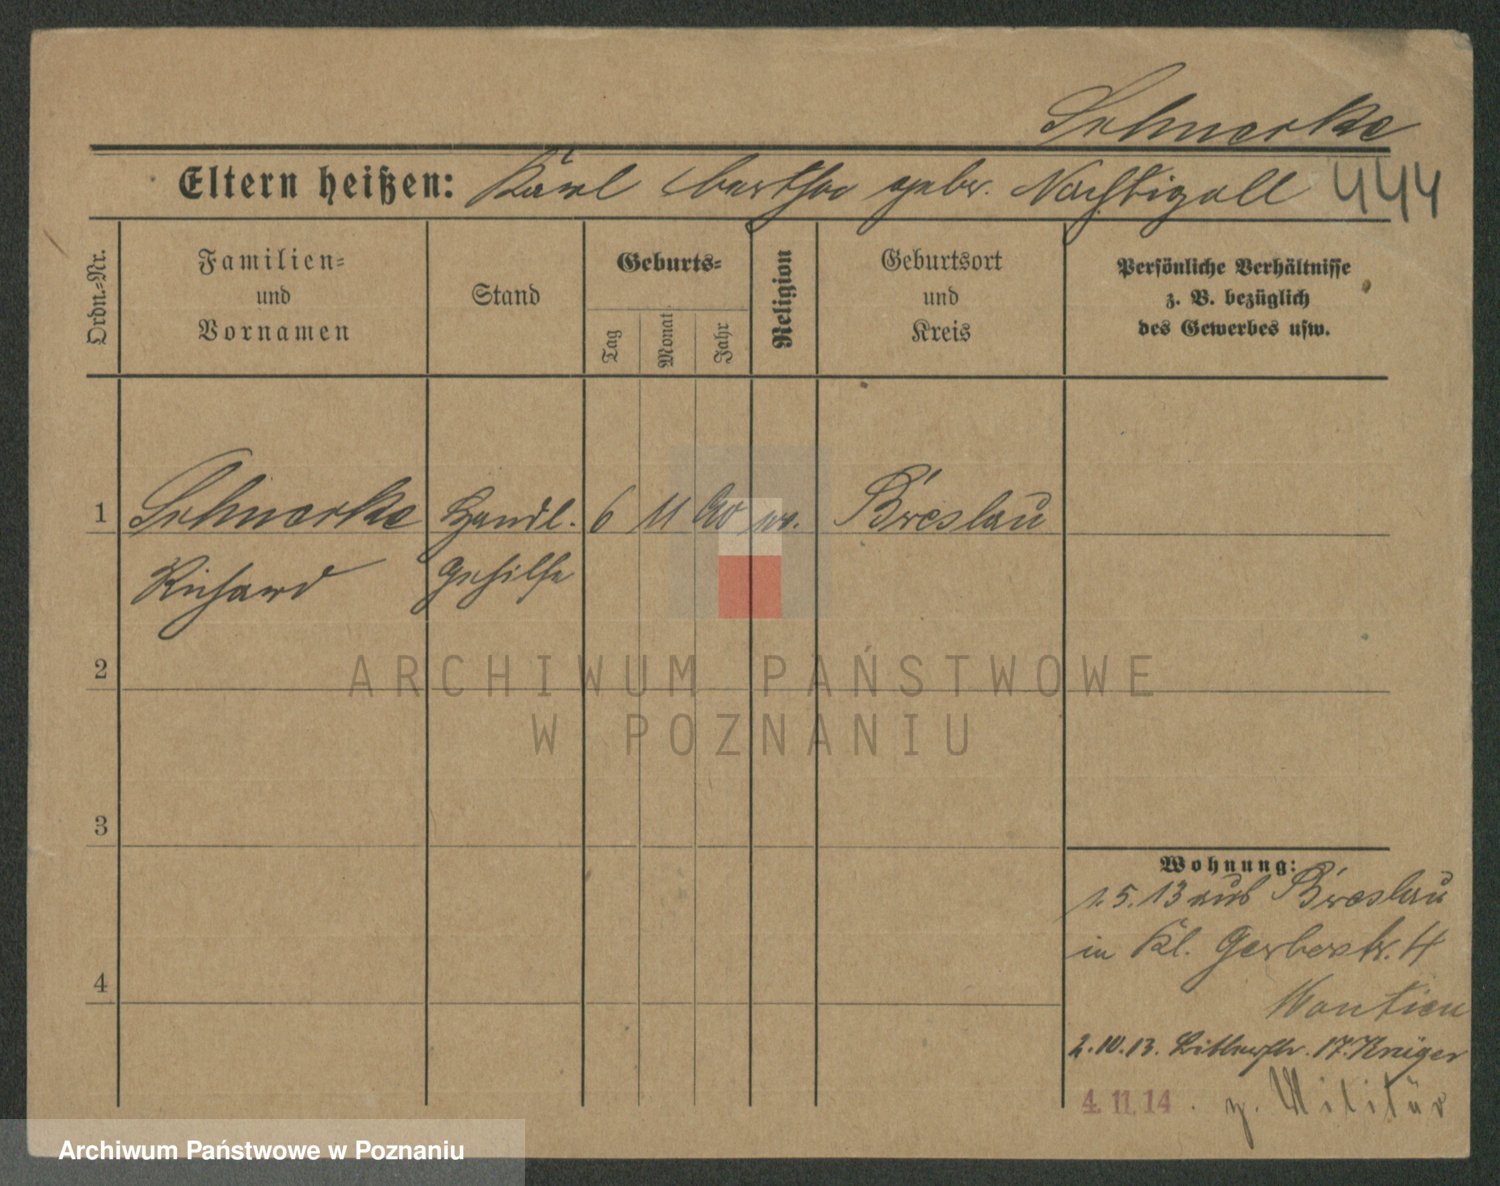 Schnerke
Eltern heißen: Karl Bertha gebr. Nachtigall 444
Ordn.-Nr.
Familien-
und
Vornamen
Stand
Geburts-
Tag
Monat
Jahr
Religion
Geburtsort
und
Kreis
Persönliche Verhältnisse
z. B. bezüglich
des Gewerbes usw.
1 Schnerke Handl. 6 11 90 ev. Breslau
Richard Gehilfe
2
ARCHIWUM PAŃSTWOWE
W POZNANIU
3
4
Wohnung:
1.5.13 aus Breslau
in Kl. Gerberstr. 4
2.10.13. 17. Krüger
4. 11. 14. z. Militär
Archiwum Państwowe w Poznaniu